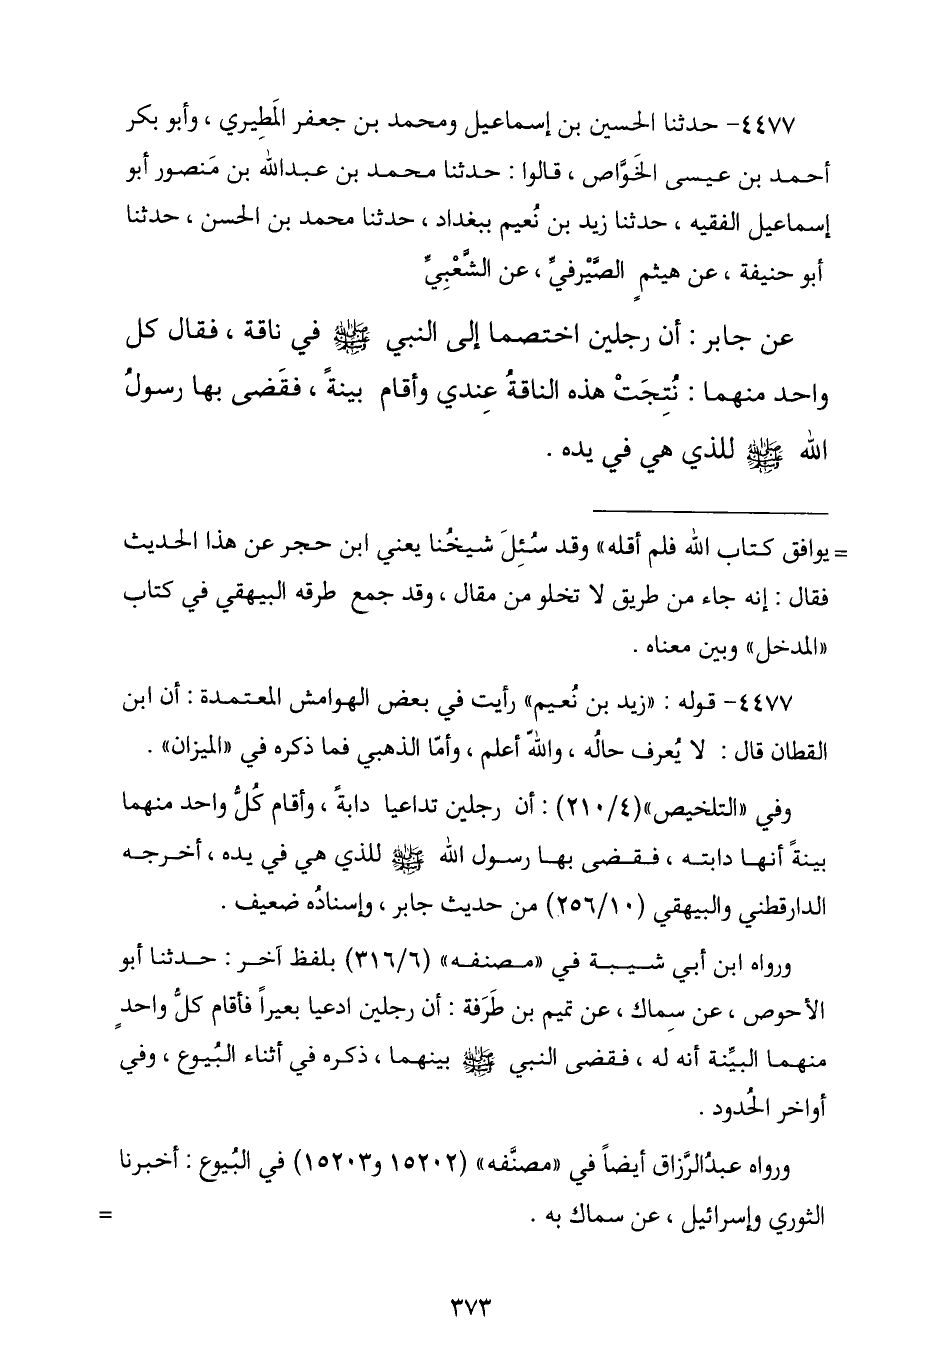 ٤٤٧٧- حدثنا الحسين بن إسماعيل ومحمد بن جعفر المَطِيري ، وأبو بكر
أحمد بن عيسى الخَوَّاص ، قالوا : حدثنا محمد بن عبدالله بن مَنصور أبو
إسماعيل الفقيه ، حدثنا زيد بن نُعيم ببغداد ، حدثنا محمد بن الحسن ، حدثنا
أبو حنيفة ، عن هيثمٍ الصَّيْرفيِّ ، عن الشَّعْبِيِّ
عن جابر : أن رجلين اختصما إلى النبي ﷺ في ناقة ، فقال كل
واحد منهما : نُتِجَتْ هذه الناقةُ عِندي وأقام بينةً ، فقَضى بها رسولُ
الله ﷺ للذي هي في يده .
= يوافق كتاب الله فلم أقله» وقد سُئِلَ شيخُنا يعني ابن حجر عن هذا الحديث
فقال : إنه جاء من طريق لا تخلو من مقال ، وقد جمع طرقه البيهقي في كتاب
«المدخل» وبين معناه .
٤٤٧٧- قوله : «زيد بن نُعيم» رأيت في بعض الهوامش المعتمدة : أن ابن
القطان قال : لا يُعرف حالُه ، واللهُ أعلم ، وأمّا الذهبي فما ذكره في «الميزان» .
وفي «التلخيص»(٢١٠/٤) : أن رجلين تداعيا دابةً ، وأقام كُلُّ واحد منهما
بينةً أنها دابته ، فقضى بها رسول الله ﷺ للذي هي في يده ، أخرجه
الدارقطني والبيهقي (٢٥٦/١٠) من حديث جابر ، وإسنادُه ضعيف .
ورواه ابن أبي شيبة في «مصنفه» (٣١٦/٦) بلفظ آخر : حدثنا أبو
الأحوص ، عن سِماك ، عن تميم بن طَرَفة : أن رجلين ادعيا بعيراً فأقام كلُّ واحدٍ
منهما البيِّنة أنه له ، فقضى النبي ﷺ بينهما ، ذكره في أثناء البُيوع ، وفي
أواخر الحُدود .
ورواه عبدُالرَّزاق أيضاً في «مصنَّفه» (١٥٢٠٢ و١٥٢٠٣) في البُيوع : أخبرنا
الثوري وإسرائيل ، عن سماك به . =
٣٧٣